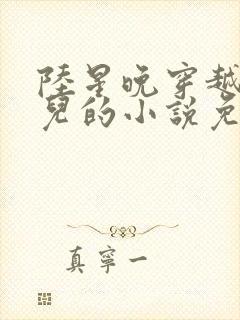 陸星晚穿越
兒的小說免
真寧一